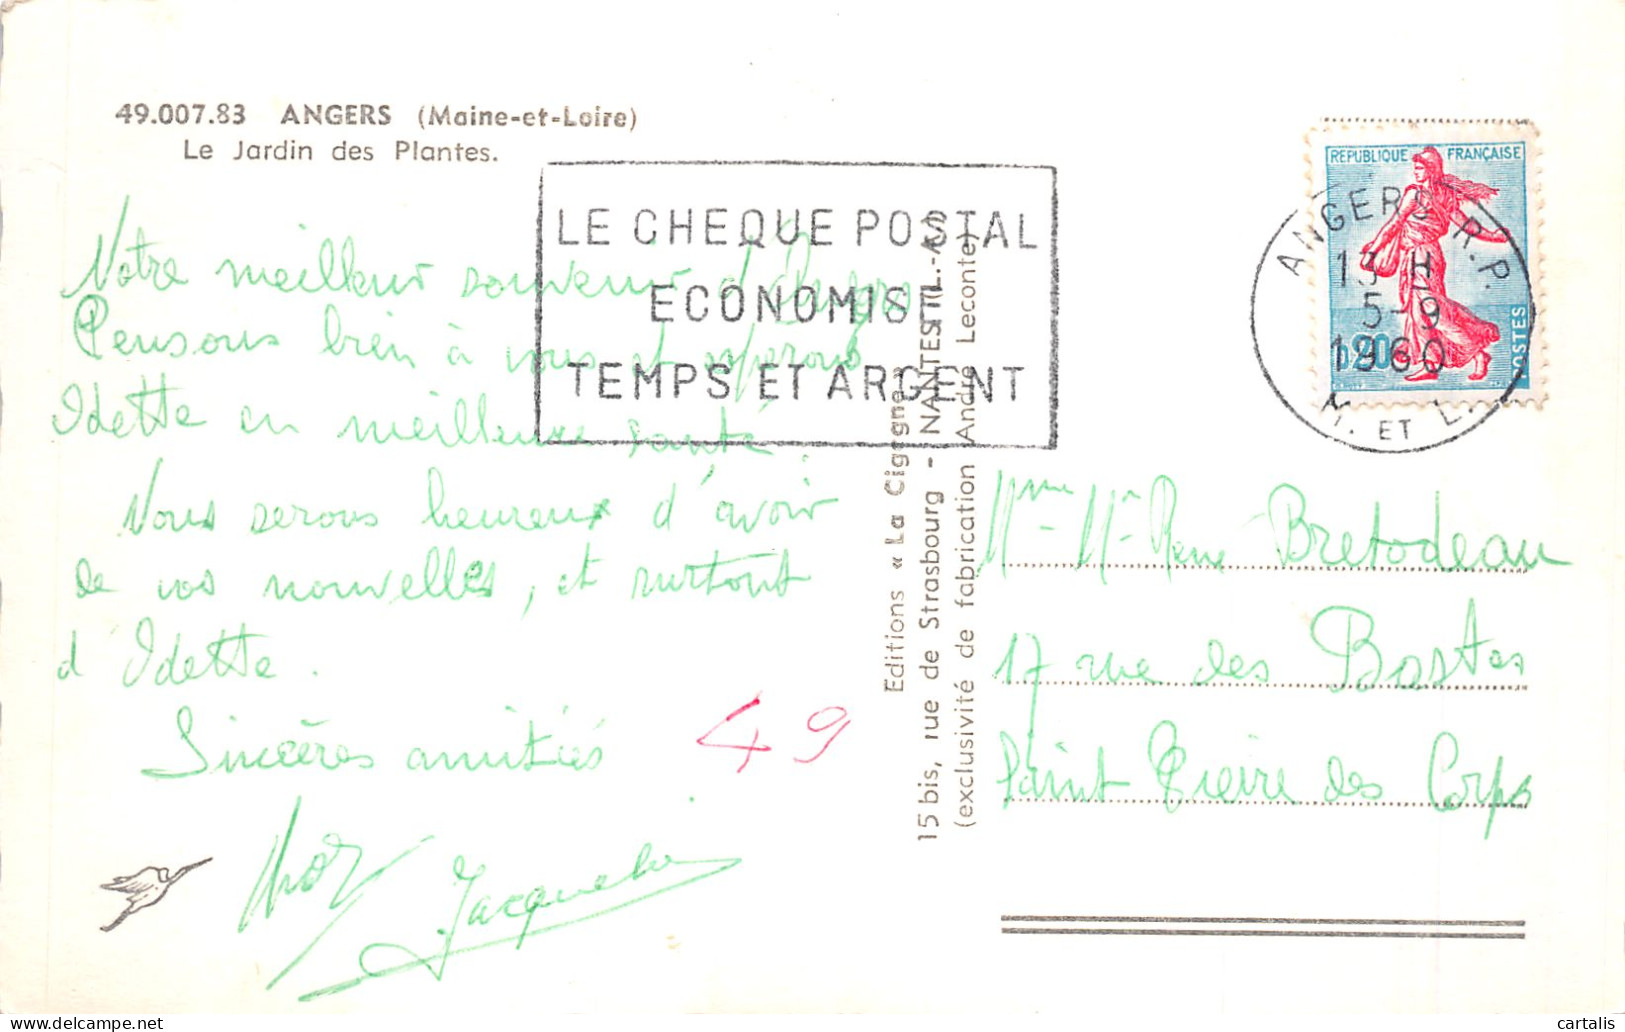 49.007.83 ANGERS (Maine-et-Loire)
Le Jardin des Plantes.
LE CHEQUE POSTAL
ECONOMISE
TEMPS ET ARGENT
REPUBLIQUE FRANÇAISE
0,20
POSTES
ANGERS R.P.
13 H
5-9
1960
M. ET L.
Notre meilleur souvenir d'Angers
Pensons bien à vous et espérons
Idette en meilleure santé.
Nous serons heureux d'avoir
de vos nouvelles, et surtout
d'Idette.
Sincères amitiés
49
Jacqueline
Editions « La Cigogne »
15 bis, rue de Strasbourg - NANTES
(exclusivité de fabrication André Leconte)
Mme Mr René Bretodeau
17 rue des Bastes
Saint Pierre des Corps
cartalis